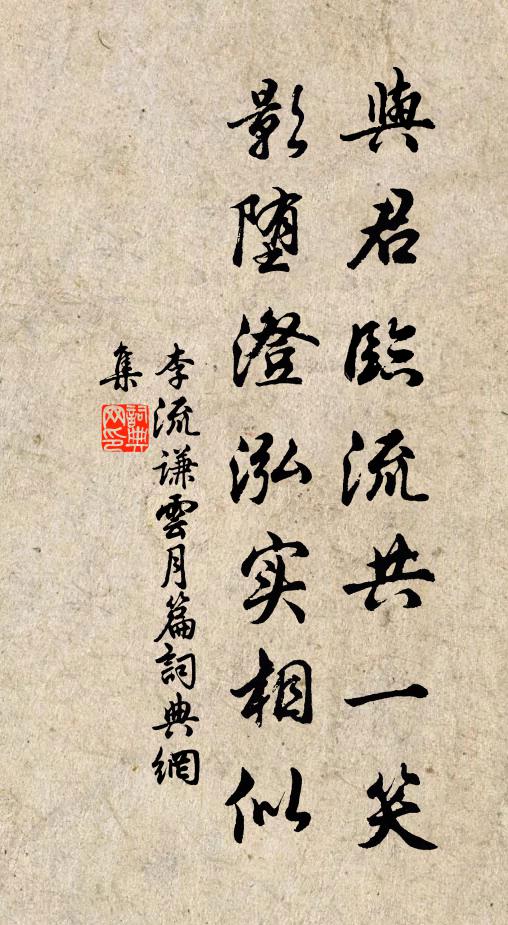 與君臨流共一笑
影堕澄泓实相似
李流谦雲月篇詞典網
集
詞典
网印